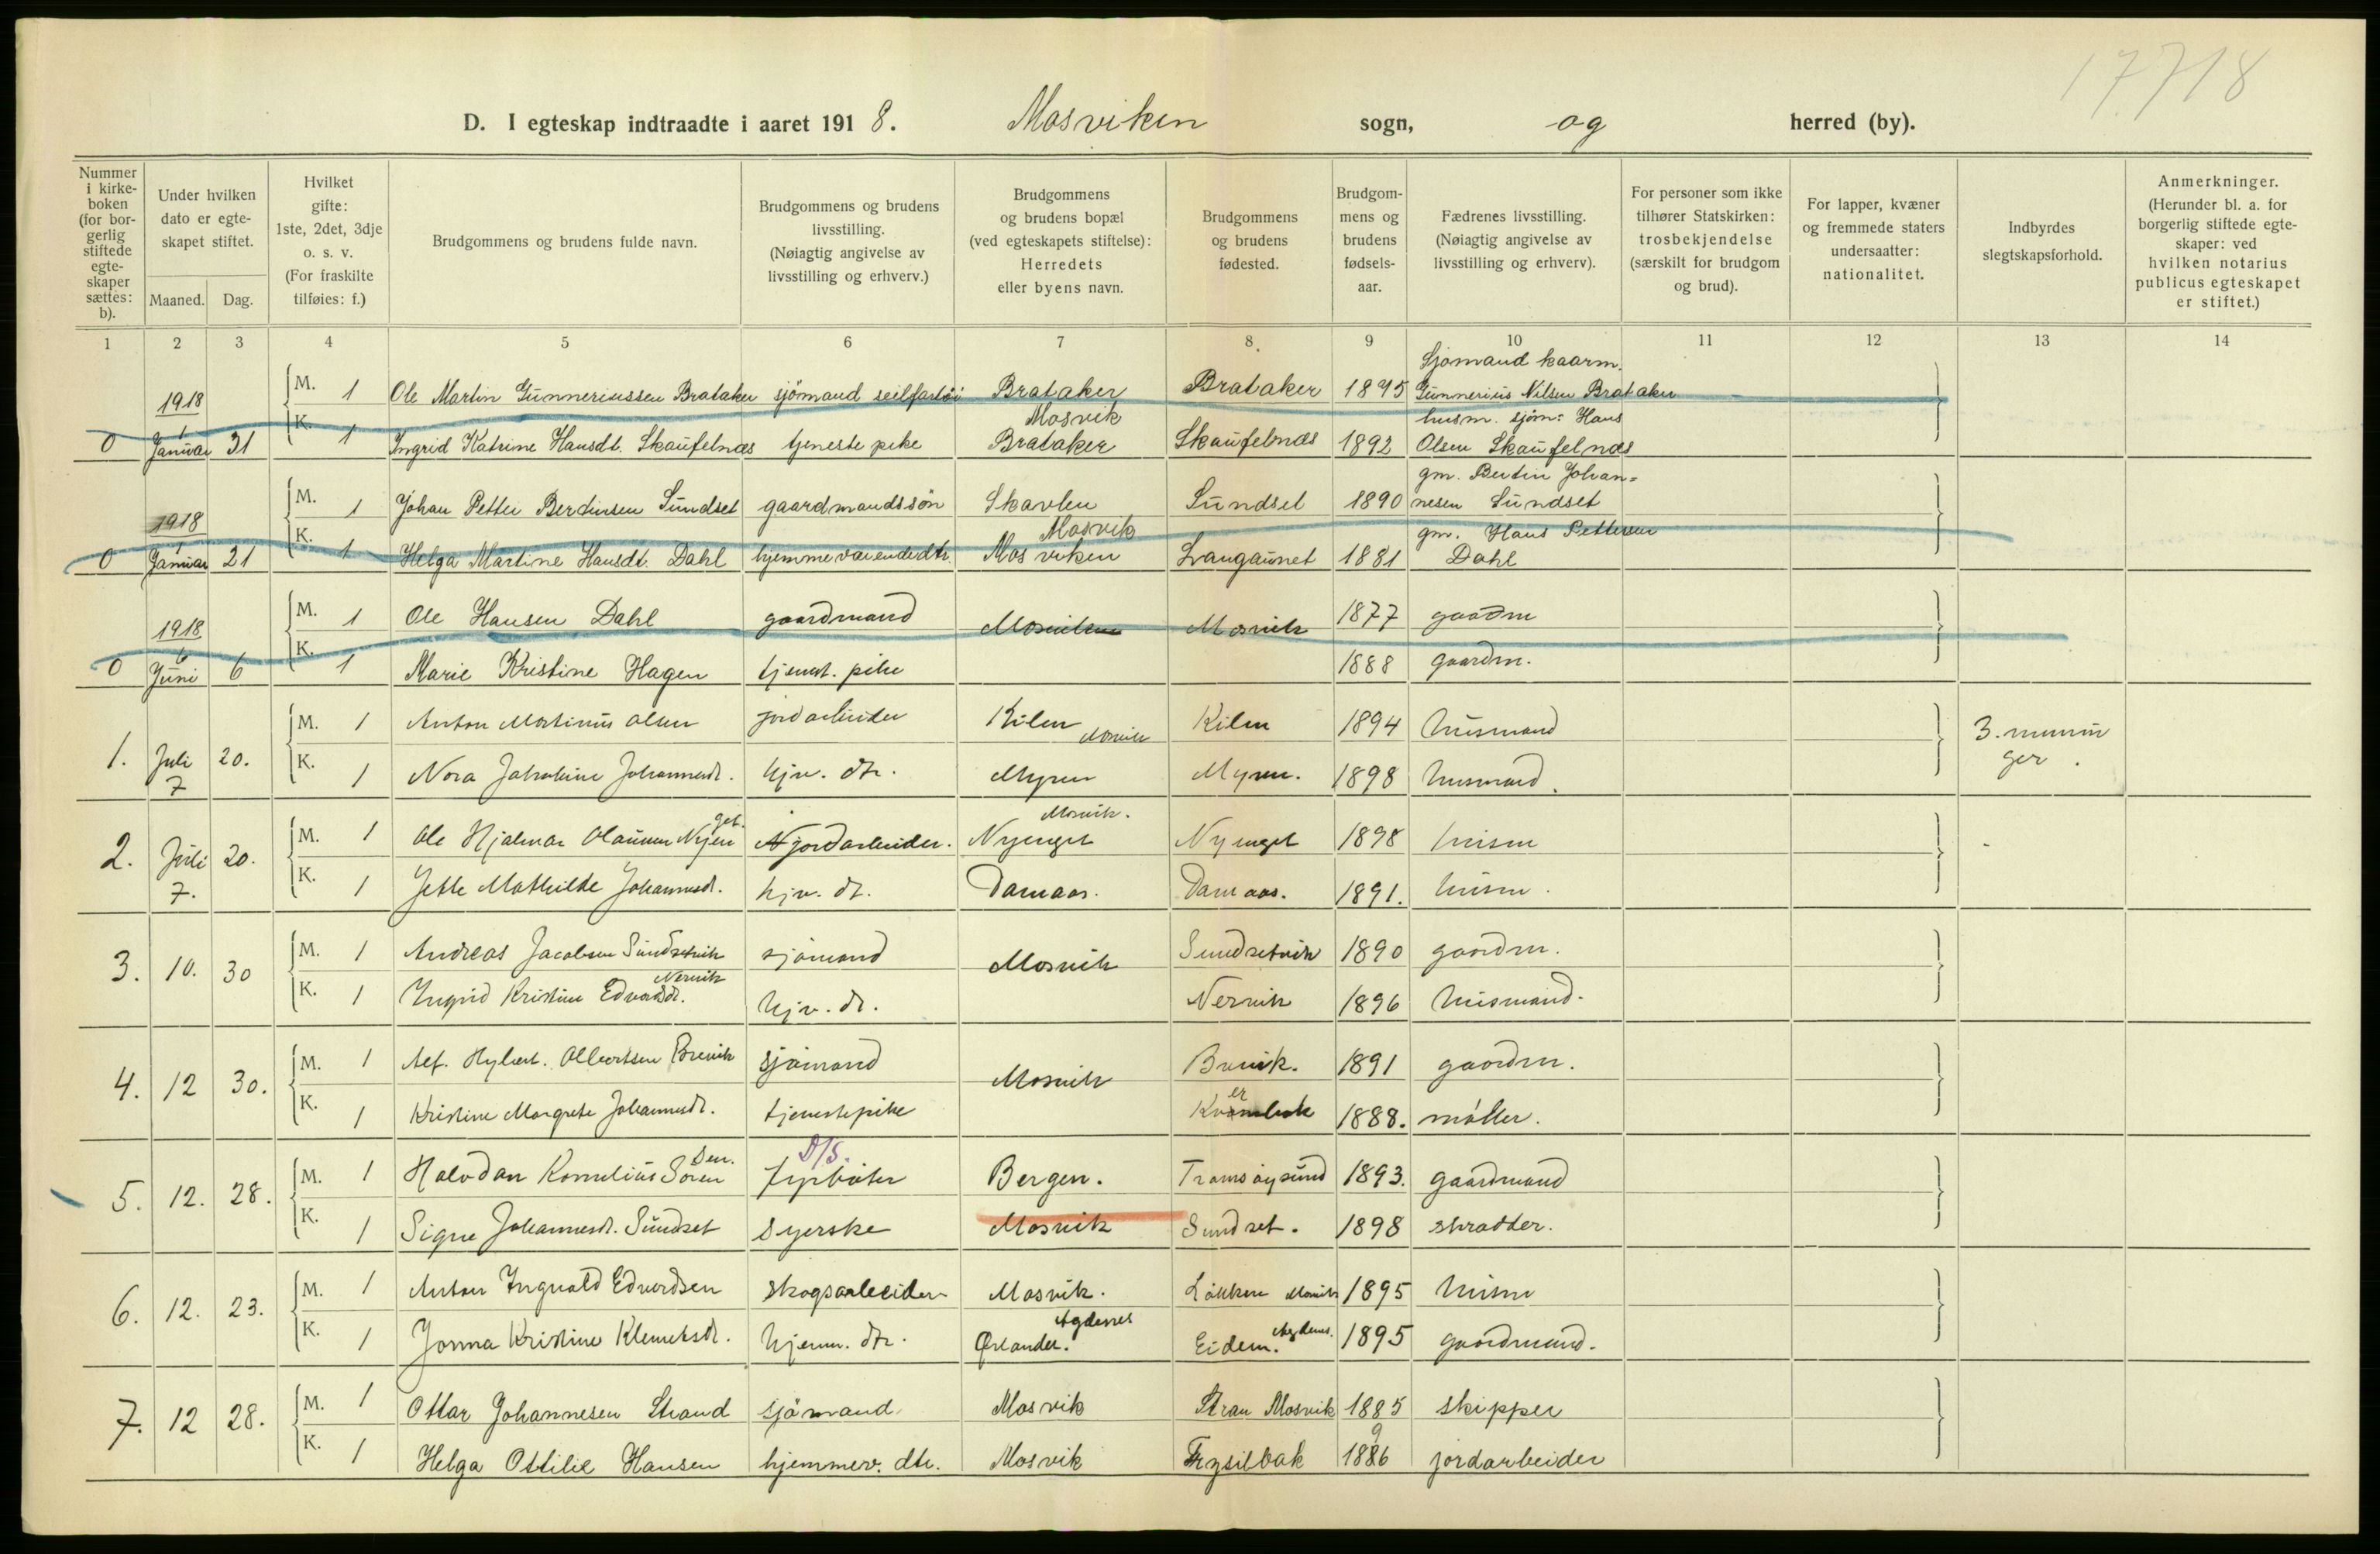 17718
D. I egteskap indtraadte i aaret 1918. Mosviken sogn, og herred (by).
Nummer i kirkeboken (for borgerlig stiftede egteskaper sættes: b).
Under hvilken dato er egteskapet stiftet.
Maaned. Dag.
Hvilket gifte: 1ste, 2det, 3dje o. s. v. (For fraskilte tilføies: f.)
Brudgommens og brudens fulde navn.
Brudgommens og brudens livsstilling. (Nøiagtig angivelse av livsstilling og erhverv.)
Brudgommens og brudens bopæl (ved egteskapets stiftelse): Herredets eller byens navn.
Brudgommens og brudens fødested.
Brudgommens og brudens fødselsaar.
Fædrenes livsstilling. (Nøiagtig angivelse av livsstilling og erhverv).
For personer som ikke tilhører Statskirken: trosbekjendelse (særskilt for brudgom og brud).
For lapper, kvæner og fremmede staters undersaatter: nationalitet.
Indbyrdes slegtskapsforhold.
Anmerkninger. (Herunder bl. a. for borgerlig stiftede egteskaper: ved hvilken notarius publicus egteskapet er stiftet.)
1 2 3 4 5 6 7 8 9 10 11 12 13 14
1918 M. 1 Ole Martin Gunneriussen Brataker sjömand seilfartöi Brataker Brataker 1895 Sjömand kaarm. Gunnerius Nilsen Brataker
0 1 Januar 31 K. 1 Ingrid Katrine Hansdt. Skaufelnæs tjeneste pike Mosvik Brataker Skaufelnæs 1892 husm. sjöm: Hans Olsen Skaufelnæs
1918 M. 1 Johan Petter Bertinsen Sundset gaardmandssön Skavlen Sundset 1890 gm. Bertin Johannesen Sundset
0 1 Januar 21 K. 1 Helga Martine Hansdt. Dahl hjemmeværende dtr. Mosvik Mosviken Langaunet 1881 gm. Hans Pettersen Dahl
1918 M. 1 Ole Hansen Dahl gaardmand Mosviken Mosvik 1877 gaardm
0 6 Juni 6 K. 1 Marie Kristine Hagen tjenest. pike 1888 gaardm.
1. Juli 7 20. M. 1 Anton Martinus Olsen jordarbeider Kilen Mosvik Kilen 1894 husmand 3. menninger.
K. 1 Nora Jakobine Johannesdt. hjv. dtr. Myren Myren. 1898 husmand.
2. Juli 7. 20. M. 1 Ole Hjalmar Olausen Nyenget. jordarbeider. Mosvik. Nyenget Nyenget 1898 husm
K. 1 Jette Mathilde Johannesdt. hjv. dt. Damaas. Damaas. 1891. husm.
3. 10. 30 M. 1 Andreas Jacobsen Sundsetvik sjömand Mosvik Sundsetvik 1890 gaardm.
K. 1 Ingrid Kristine Edvardsdt. Nervik hjv. dt. Nervik 1896 husmand.
4. 12 30. M. 1 Alf. Hylbert. Albertsen Brevik sjömand Mosvik Brevik. 1891 gaardm.
K. 1 Kristine Margrete Johannesdt. tjenestepike 1888. möller.
5. 12. 28. M. 1 Halvdan Kornelius Sörensen. D/S. fyrböter Bergen. Tromsöysund 1893. gaardmand
K. 1 Signe Johannesdt. Sundset Syerske Mosvik Sundset. 1898 skrædder.
6. 12. 23. M. 1 Anton Ingvald Edvardsen skogsarbeider Mosvik. Lökken Mosvik 1895 husm
K. 1 Jonna Kristine Klemetsdt. hjemv. dtr. Agdenes Ørlandet. Eidem. Agdenes. 1895 gaardmand.
7. 12 28. M. 1 Ottar Johannesen Strand sjömand Mosvik Stran Mosvik 1885 skipper
K. 1 Helga Ottilie Hansen hjemmev. dtr. Mosvik Trysilbak 1896 jordarbeider